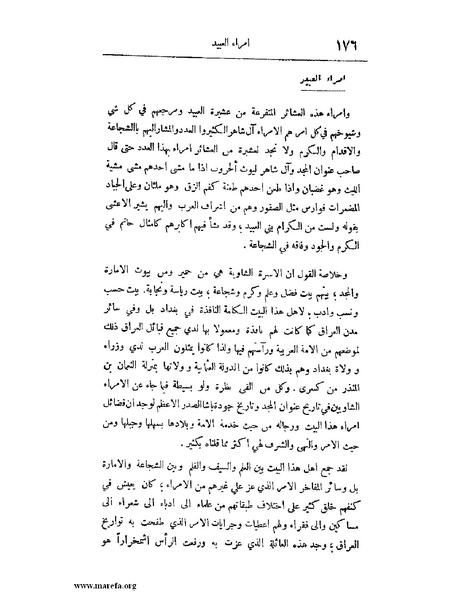 ١٧٦ امراء العبيد
امراء العبيد
وامراء هذه العشائر المتفرعة من عشيرة العبيد ومرجعهم في كل شي
وشيوخهم في كل امر هم الامراء آل شاهر الكثيروا العدد والمشار اليهم بالشجاعة
والاقدام والكرم ولا تجد لعشيرة من العشائر امراء بهذا العدد حتى قال
صاحب عنوان المجد وآل شاهر ليوث الحروب اذا ما مشى احدهم مشى مشية
الليث وهو غضبان واذا طعن احدهم طعنة كفم الزق وهو ملئان وعلى الجياد
المضمرات فوارس مثل الصقور وهم من اشراف العرب واليهم يشير الاعشى
بقوله ولست من الكرام بني العبيد ؛ وقد نشأ فيهم اكابرهم كامثال حاتم في
الكرم والجود وفاقه في الشجاعة .
وخلاصة القول ان الاسرة الشاوية هي من حمير ومن بيوت الامارة
والمجد ؛ بيتهم بيت فضل وعلم وكرم وشجاعة ؛ بيت رياسة ونجابة . بيت حسب
ونسب وادب ؛ لاهل هذا البيت الكلمة النافذة في بغداد بل وفي سائر
مدن العراق كما كانت لهم نافذة ومعمولا بها لدي جميع قبائل العراق ذلك
لموضعهم من الامة العربية ورآستهم فيها ولذا كانوا يمثلون العرب لدي وزراء
و ولاة بغداد وهم بذلك كانوا من الدولة العثمانية و ولاتها بمنزلة النعمان بن
المنذر من كسرى . وكل من القى نظرة ولو بسيطة فيما جاء عن الامراء
الشاويين في تاريخ عنوان المجد وتاريخ جودة باشا الصدر الاعظم لوجد ان فضائل
امراء هذا البيت ورجاله من حيث خدمة الامة وبلادها بسهلها وجبلها ومن
حيث الامر والنهى والشرف لهي أكثر مما قلناه بكثير .
لقد جمع اهل هذا البيت بين العلم والسيف والقلم و بين الشجاعة والامارة
بل وسائر المفاخر الامر الذي عز على غيرهم من الامراء ؛ كان يعيش في
كنفهم خلق كثير على اختلاف طبقاتهم من علماء الى ادباء الى شعراء الى
مساكين والى فقراء ولهم اعطيات وجرايات الامر الذي طفحت به تواريخ
العراق ؛ وجد هذه العائلة الذي عزت به ورفعت الرأس اشمخراراً هو
www.marefa.org